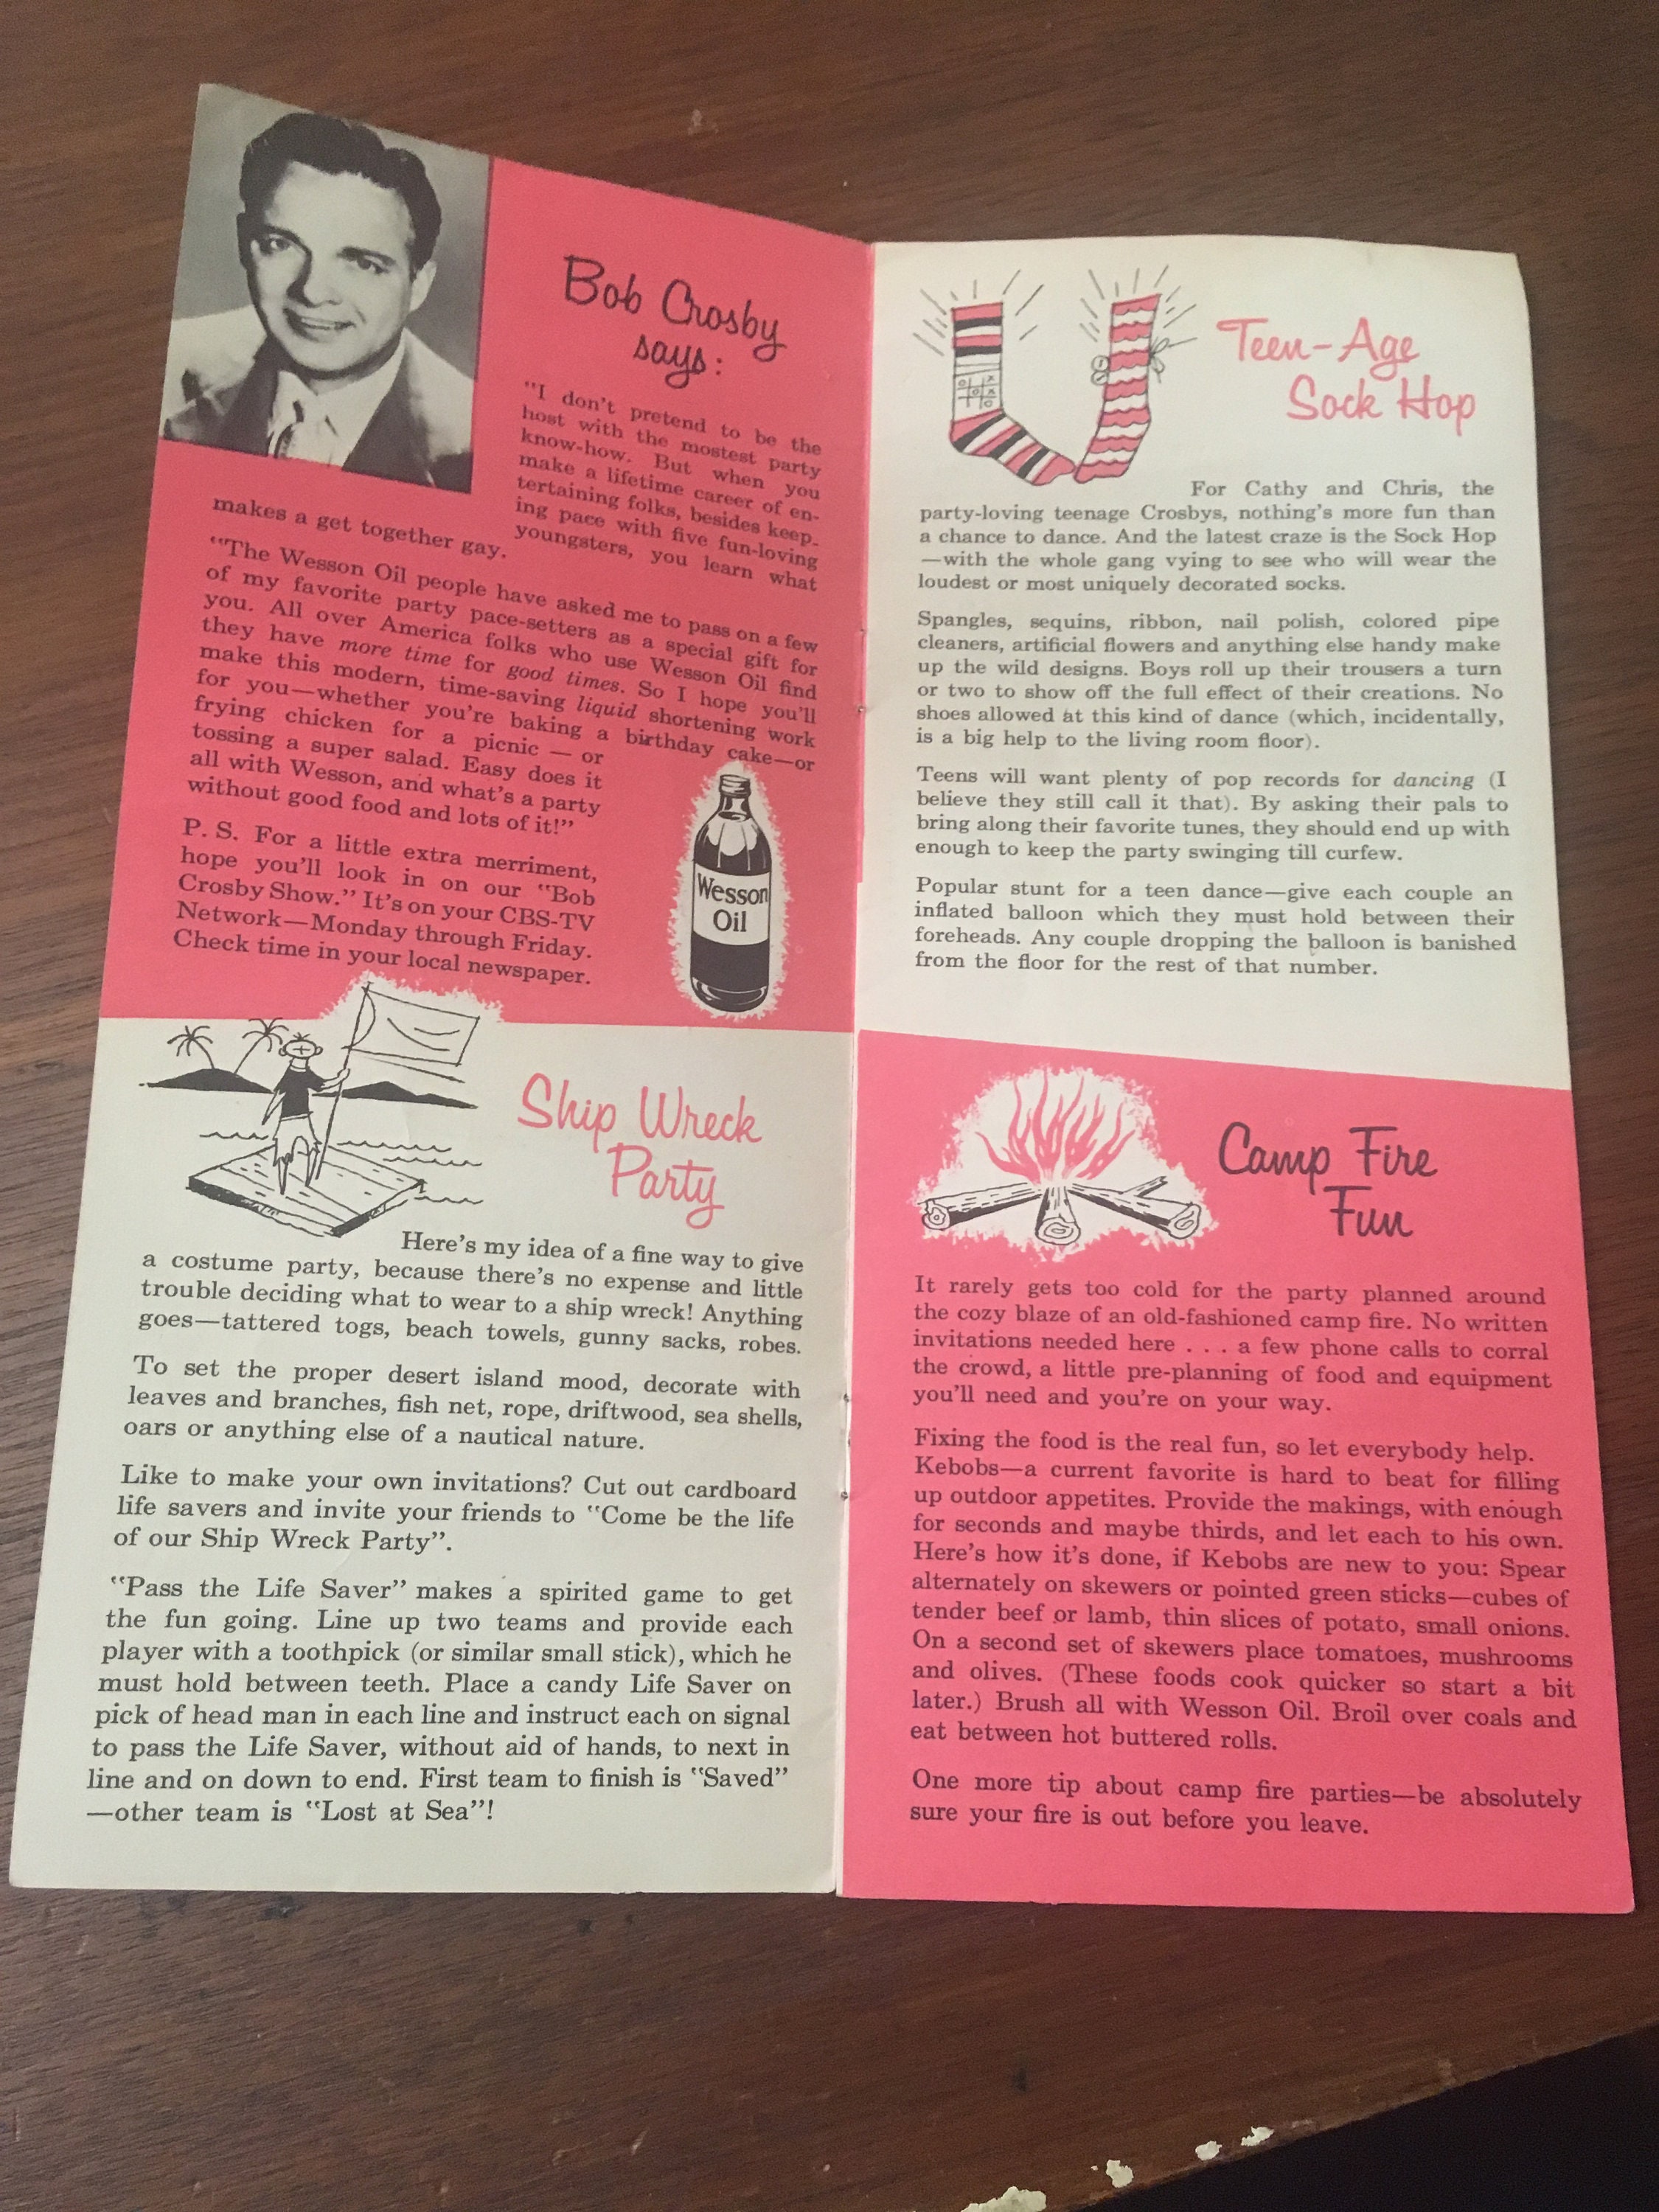 Bob Crosby
says:
"I don't pretend to be the
host with the mostest party
know-how. But when you
make a lifetime career of en-
tertaining folks, besides keep-
ing pace with five fun-loving
youngsters, you learn what
makes a get together gay.
"The Wesson Oil people have asked me to pass on a few
of my favorite party pace-setters as a special gift for
you. All over America folks who use Wesson Oil find
they have more time for good times. So I hope you'll
make this modern, time-saving liquid shortening work
for you—whether you're baking a birthday cake—or
frying chicken for a picnic — or
tossing a super salad. Easy does it
all with Wesson, and what's a party
without good food and lots of it!"
P. S. For a little extra merriment,
hope you'll look in on our "Bob
Crosby Show." It's on your CBS-TV
Network—Monday through Friday.
Check time in your local newspaper.
Wesson
Oil
Ship Wreck
Party
Here's my idea of a fine way to give
a costume party, because there's no expense and little
trouble deciding what to wear to a ship wreck! Anything
goes—tattered togs, beach towels, gunny sacks, robes.
To set the proper desert island mood, decorate with
leaves and branches, fish net, rope, driftwood, sea shells,
oars or anything else of a nautical nature.
Like to make your own invitations? Cut out cardboard
life savers and invite your friends to "Come be the life
of our Ship Wreck Party".
"Pass the Life Saver" makes a spirited game to get
the fun going. Line up two teams and provide each
player with a toothpick (or similar small stick), which he
must hold between teeth. Place a candy Life Saver on
pick of head man in each line and instruct each on signal
to pass the Life Saver, without aid of hands, to next in
line and on down to end. First team to finish is "Saved"
—other team is "Lost at Sea"!
Teen-Age
Sock Hop
For Cathy and Chris, the
party-loving teenage Crosbys, nothing's more fun than
a chance to dance. And the latest craze is the Sock Hop
—with the whole gang vying to see who will wear the
loudest or most uniquely decorated socks.
Spangles, sequins, ribbon, nail polish, colored pipe
cleaners, artificial flowers and anything else handy make
up the wild designs. Boys roll up their trousers a turn
or two to show off the full effect of their creations. No
shoes allowed at this kind of dance (which, incidentally,
is a big help to the living room floor).
Teens will want plenty of pop records for dancing (I
believe they still call it that). By asking their pals to
bring along their favorite tunes, they should end up with
enough to keep the party swinging till curfew.
Popular stunt for a teen dance—give each couple an
inflated balloon which they must hold between their
foreheads. Any couple dropping the balloon is banished
from the floor for the rest of that number.
Camp Fire
Fun
It rarely gets too cold for the party planned around
the cozy blaze of an old-fashioned camp fire. No written
invitations needed here . . . a few phone calls to corral
the crowd, a little pre-planning of food and equipment
you'll need and you're on your way.
Fixing the food is the real fun, so let everybody help.
Kebobs—a current favorite is hard to beat for filling
up outdoor appetites. Provide the makings, with enough
for seconds and maybe thirds, and let each to his own.
Here's how it's done, if Kebobs are new to you: Spear
alternately on skewers or pointed green sticks—cubes of
tender beef or lamb, thin slices of potato, small onions.
On a second set of skewers place tomatoes, mushrooms
and olives. (These foods cook quicker so start a bit
later.) Brush all with Wesson Oil. Broil over coals and
eat between hot buttered rolls.
One more tip about camp fire parties—be absolutely
sure your fire is out before you leave.